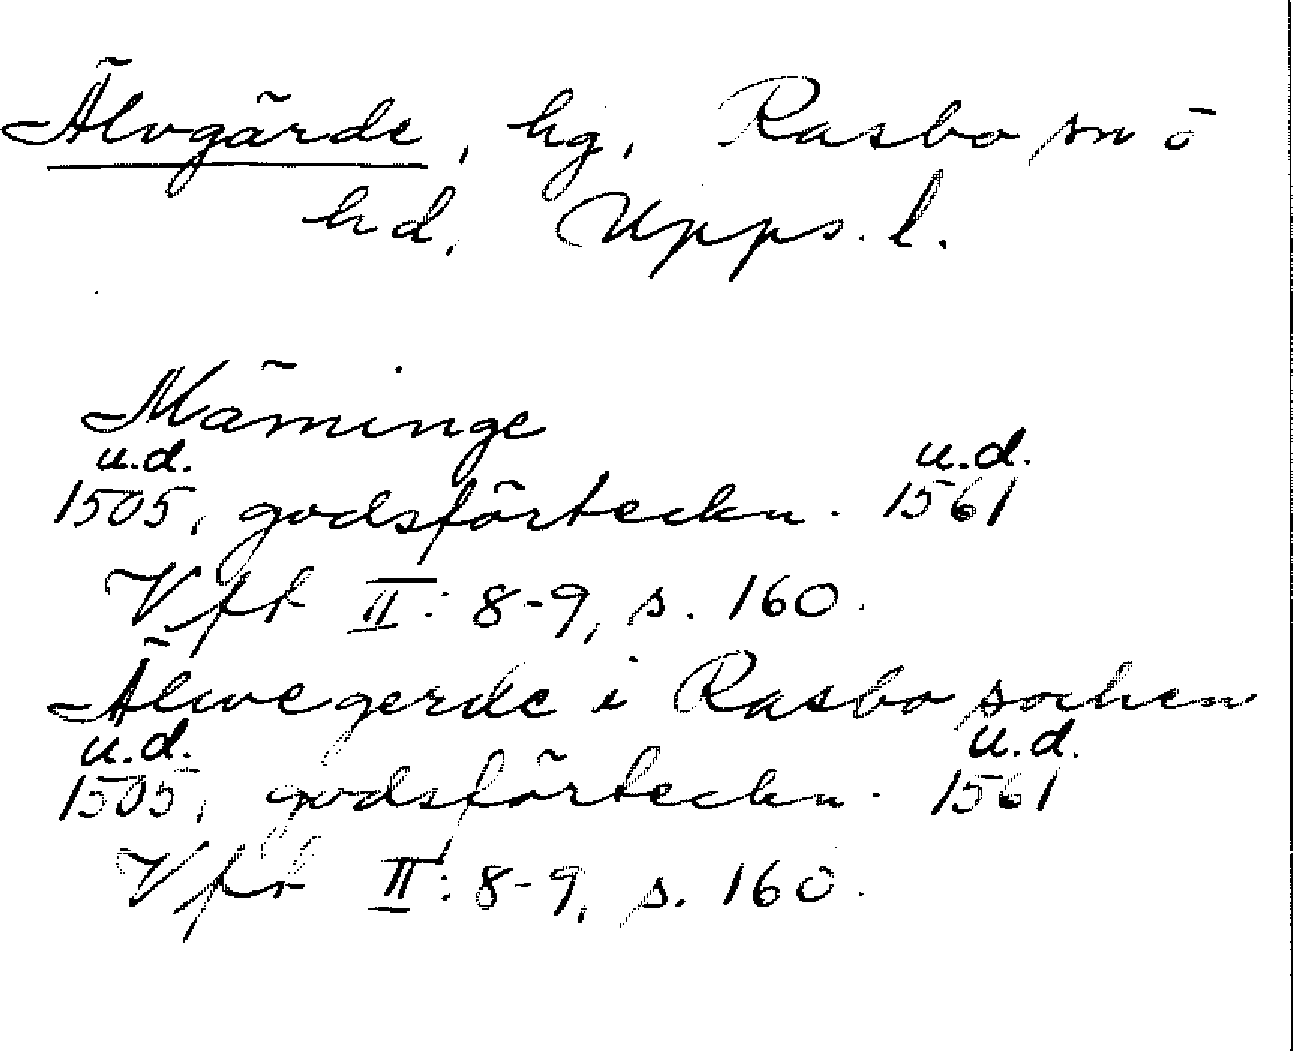 Älvgärde, hg, Rasbo sn o
hd, Upps. l.
Mäminge
u.d. u.d.
1505, godsförteckn. 1561
Vfk II: 8-9, s. 160.
Älwegerde i Rasbo sochen
u.d. u.d.
1505, godsförteckn. 1561
Vfk II: 8-9, s. 160.